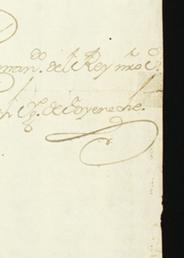 man.do del Rey nro S.r
Ig.o de Goyeneche